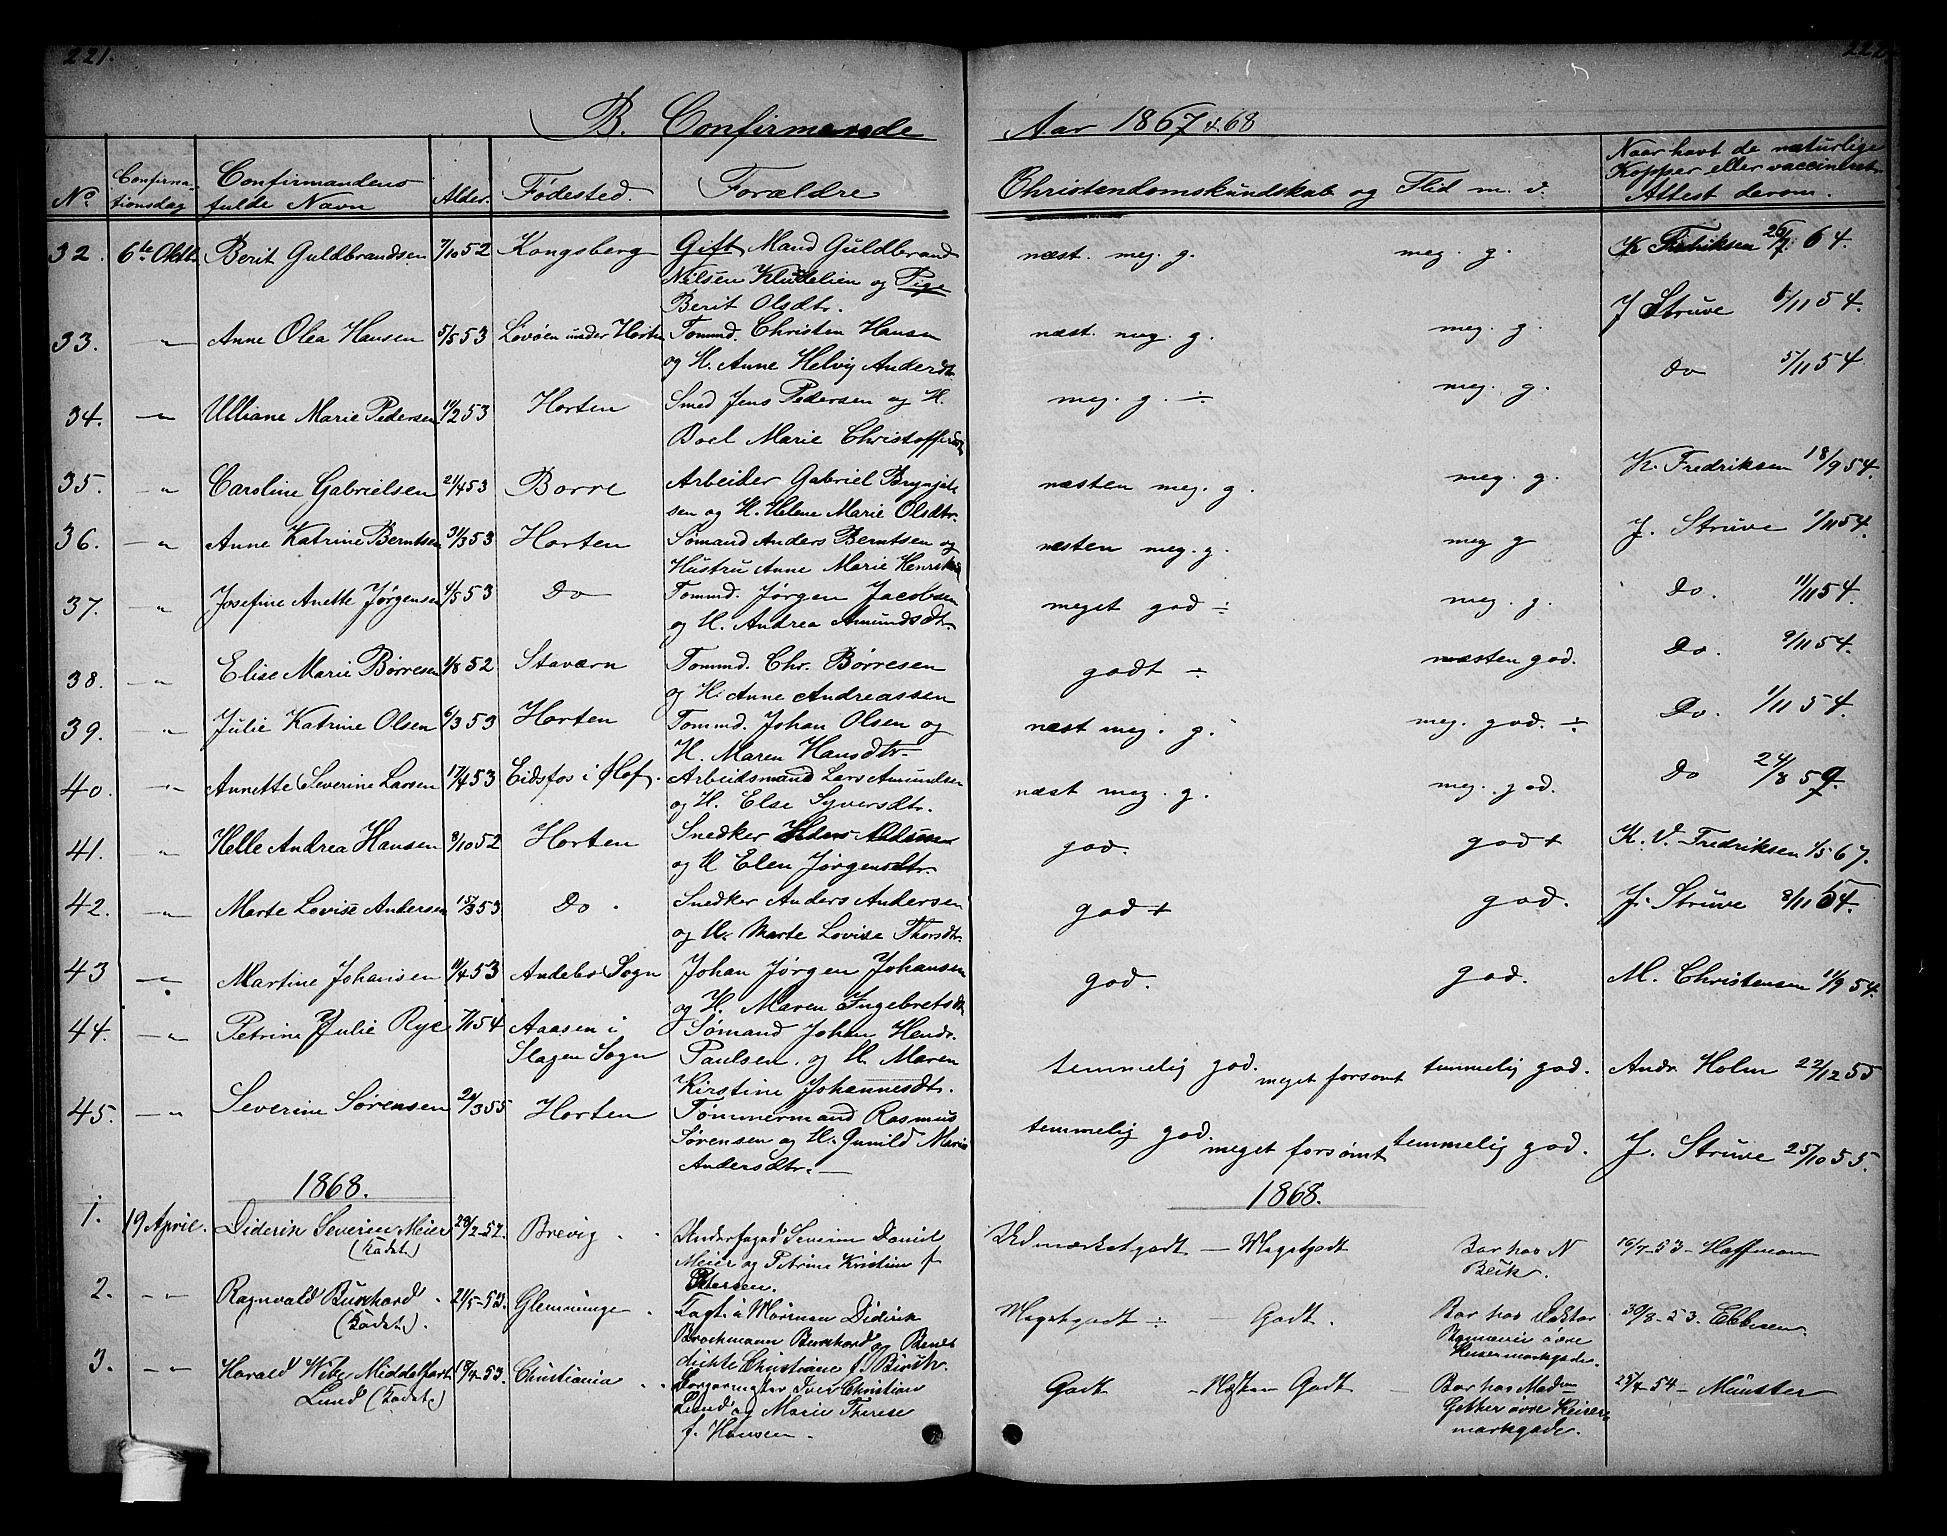 221.
222
B. Confirmerede
Aar 1867 & 68
No.
Confirmationsdag
Confirmandens fulde Navn
Alder.
Fødested.
Forældre
Christendomskundskab og Flid m. v.
Naar havt de naturlige Kopper eller vaccineret. Attest derom.
32. 6te Oktb. Berit Guldbrandsen 7/10 52 Kongsberg Gift Mand Guldbrand næst. meg. g. meg. g. K Fredriksen 26/7 64.
Nilsen og Pige
Berit Olsdtr.
33. " Anne Olea Hansen 5/5 53 Løvøen under Horten Tømmd. Christen Hansen næst. meg. g. meg. g. J Struve 6/11 54.
og H. Anne Helvig Andersdtr.
34. " Ulliane Marie Pedersen 11/2 53 Horten Smed Jens Pedersen og H. meg. g. ÷ meg. g. Do 5/11 54.
Boel Marie Christoffersdtr
35. " Caroline Gabrielsen 21/4 53 Borre Arbeider Gabriel Brynjels næsten meg. g. meg. g. K. Fredriksen 18/9 54.
sen og H. Helene Marie Olsdtr.
36. " Anne Katrine Berntsen 31/3 53 Horten Sømand Anders Berntsen og næsten meg. g. meg g J. Struve 1/11 54.
Hustru Anne Marie
37. " Josefine Anette Jørgensen 4/5 53 Do Tømmd. Jørgen Jacobsen meget god ÷ meg. g. Do. 11/11 54.
og H. Andrea Amundsdtr.
38. " Elise Marie Børresen 1/8 52 Staværn Tømmd. Chr. Børresen godt ÷ næsten god. Do. 9/11 54.
og H. Anne Andreassen
39. " Julie Katrine Olsen 6/3 53 Horten Tømmd. Johan Olsen og næst meg. g. meg. god. ÷ Do. 1/11 54.
H. Maren Hansdtr.
40. " Annette Severine Larsen 17/4 53 Eidsfos i Hof. Arbeidsmand Lars Amundsen næst meg. g. meg. god. Do 24/8 59.
og H. Else Syversdtr.
41. " Helle Andrea Hansen 8/10 52 Horten Snedker god. god + K. V. Fredriksen 1/5 67.
og H Elen Jørgensdtr.
42. " Marte Lovise Andersen 15/3 53 Do. Snedker Anders Andersen god + god. J. Struve 8/11 54.
og H. Marte Lovise Thorsdtr.
43 " Martine Johansen 11/4 53 Andebo Sogn Johan Jørgen Johansen god. god. M. Christensen 11/9 54.
og H. Maren Ingebretsdtr
44. " Petrine Julie Rye 7/1 54 Aasen i Sømand Johan Hendr.
Slagen Sogn Paulsen og H. Maren temmelig god. meget forsømt temmelig god. Andr. Holm 22/12 55
Kirstine Johannesdtr.
45. " Severine Sørensen 20/3 55 Horten Tømmermand Rasmus temmelig god. meget forsømt temmelig god. J. Struve 25/10 55.
Sørensen og H. Gunild Marie
Andersdtr.
1868.
1868.
1. 19 April. Diderik Severin Meier 28/2-52. Brevig Underfoged Severin Daniel Udmærketgodt — Megetgodt Bor hos N 16/7-53- Hoffmann
(Kadet) Meier og Petrine Kristine f. Beik.
Petersen.
2. " Ragnvald Burchard 21/5-53. Glemminge Fogt i Mörman Diderik Megetgodt ÷ — Godt. Bor hos Doktor 30/8-53. Ebbesen.
(Kadet). Brochmann Burchard og Bene øvre
dichte Christiane f. Birch.
3. " Harald Wibe Middelfart 18/4-53. Christiania Sorgeringster Iver Christian Godt — Næsten Godt Bor hos Madm 25/7-54 — Münster
Lund (Kadet) Lund og Marie Therese øvre Keiser-
f. Hansen. markgaden.